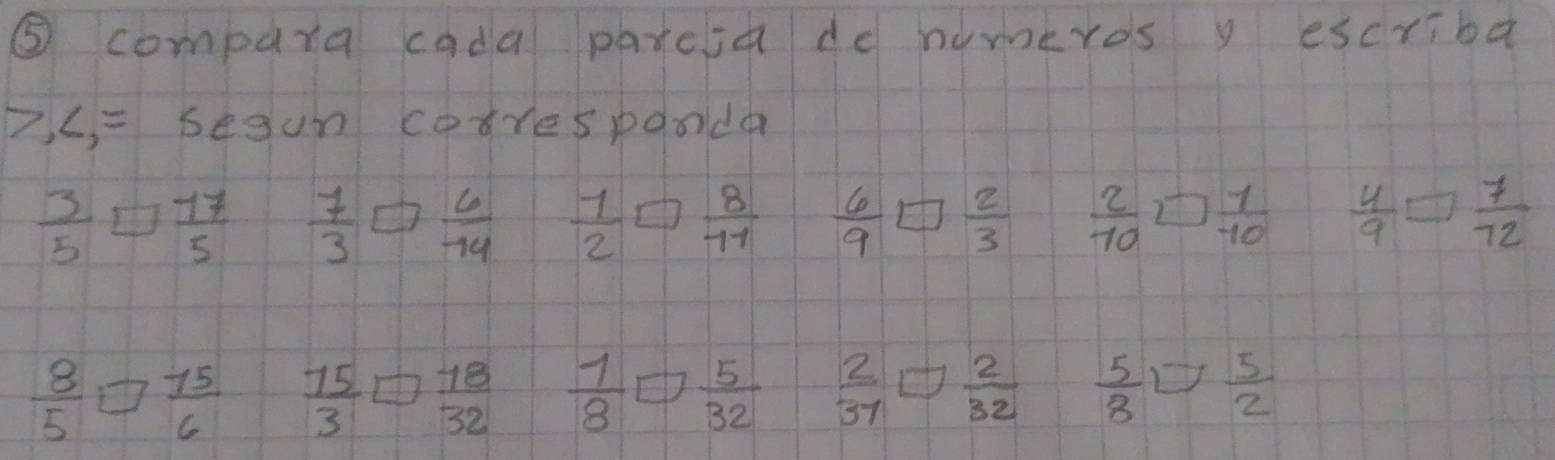 ⑤ compara cada pareja de numeros y escriba
>,<,= segun corresponda
3/5 □ 17/5 7/3 □ 6/14 1/2 □ 8/11 6/9 □ 2/3 2/10 □ 1/10 4/9 □ 7/12
8/5 □ 15/6 15/3 □ 18/32 1/8 □ 5/32 2/31 □ 2/32 5/8 □ 5/2